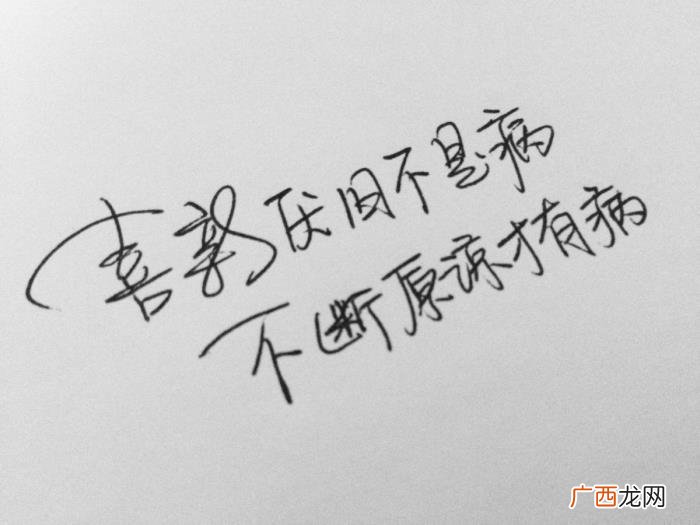 喜新厌旧不是病
不断原谅才有病
广西龙网